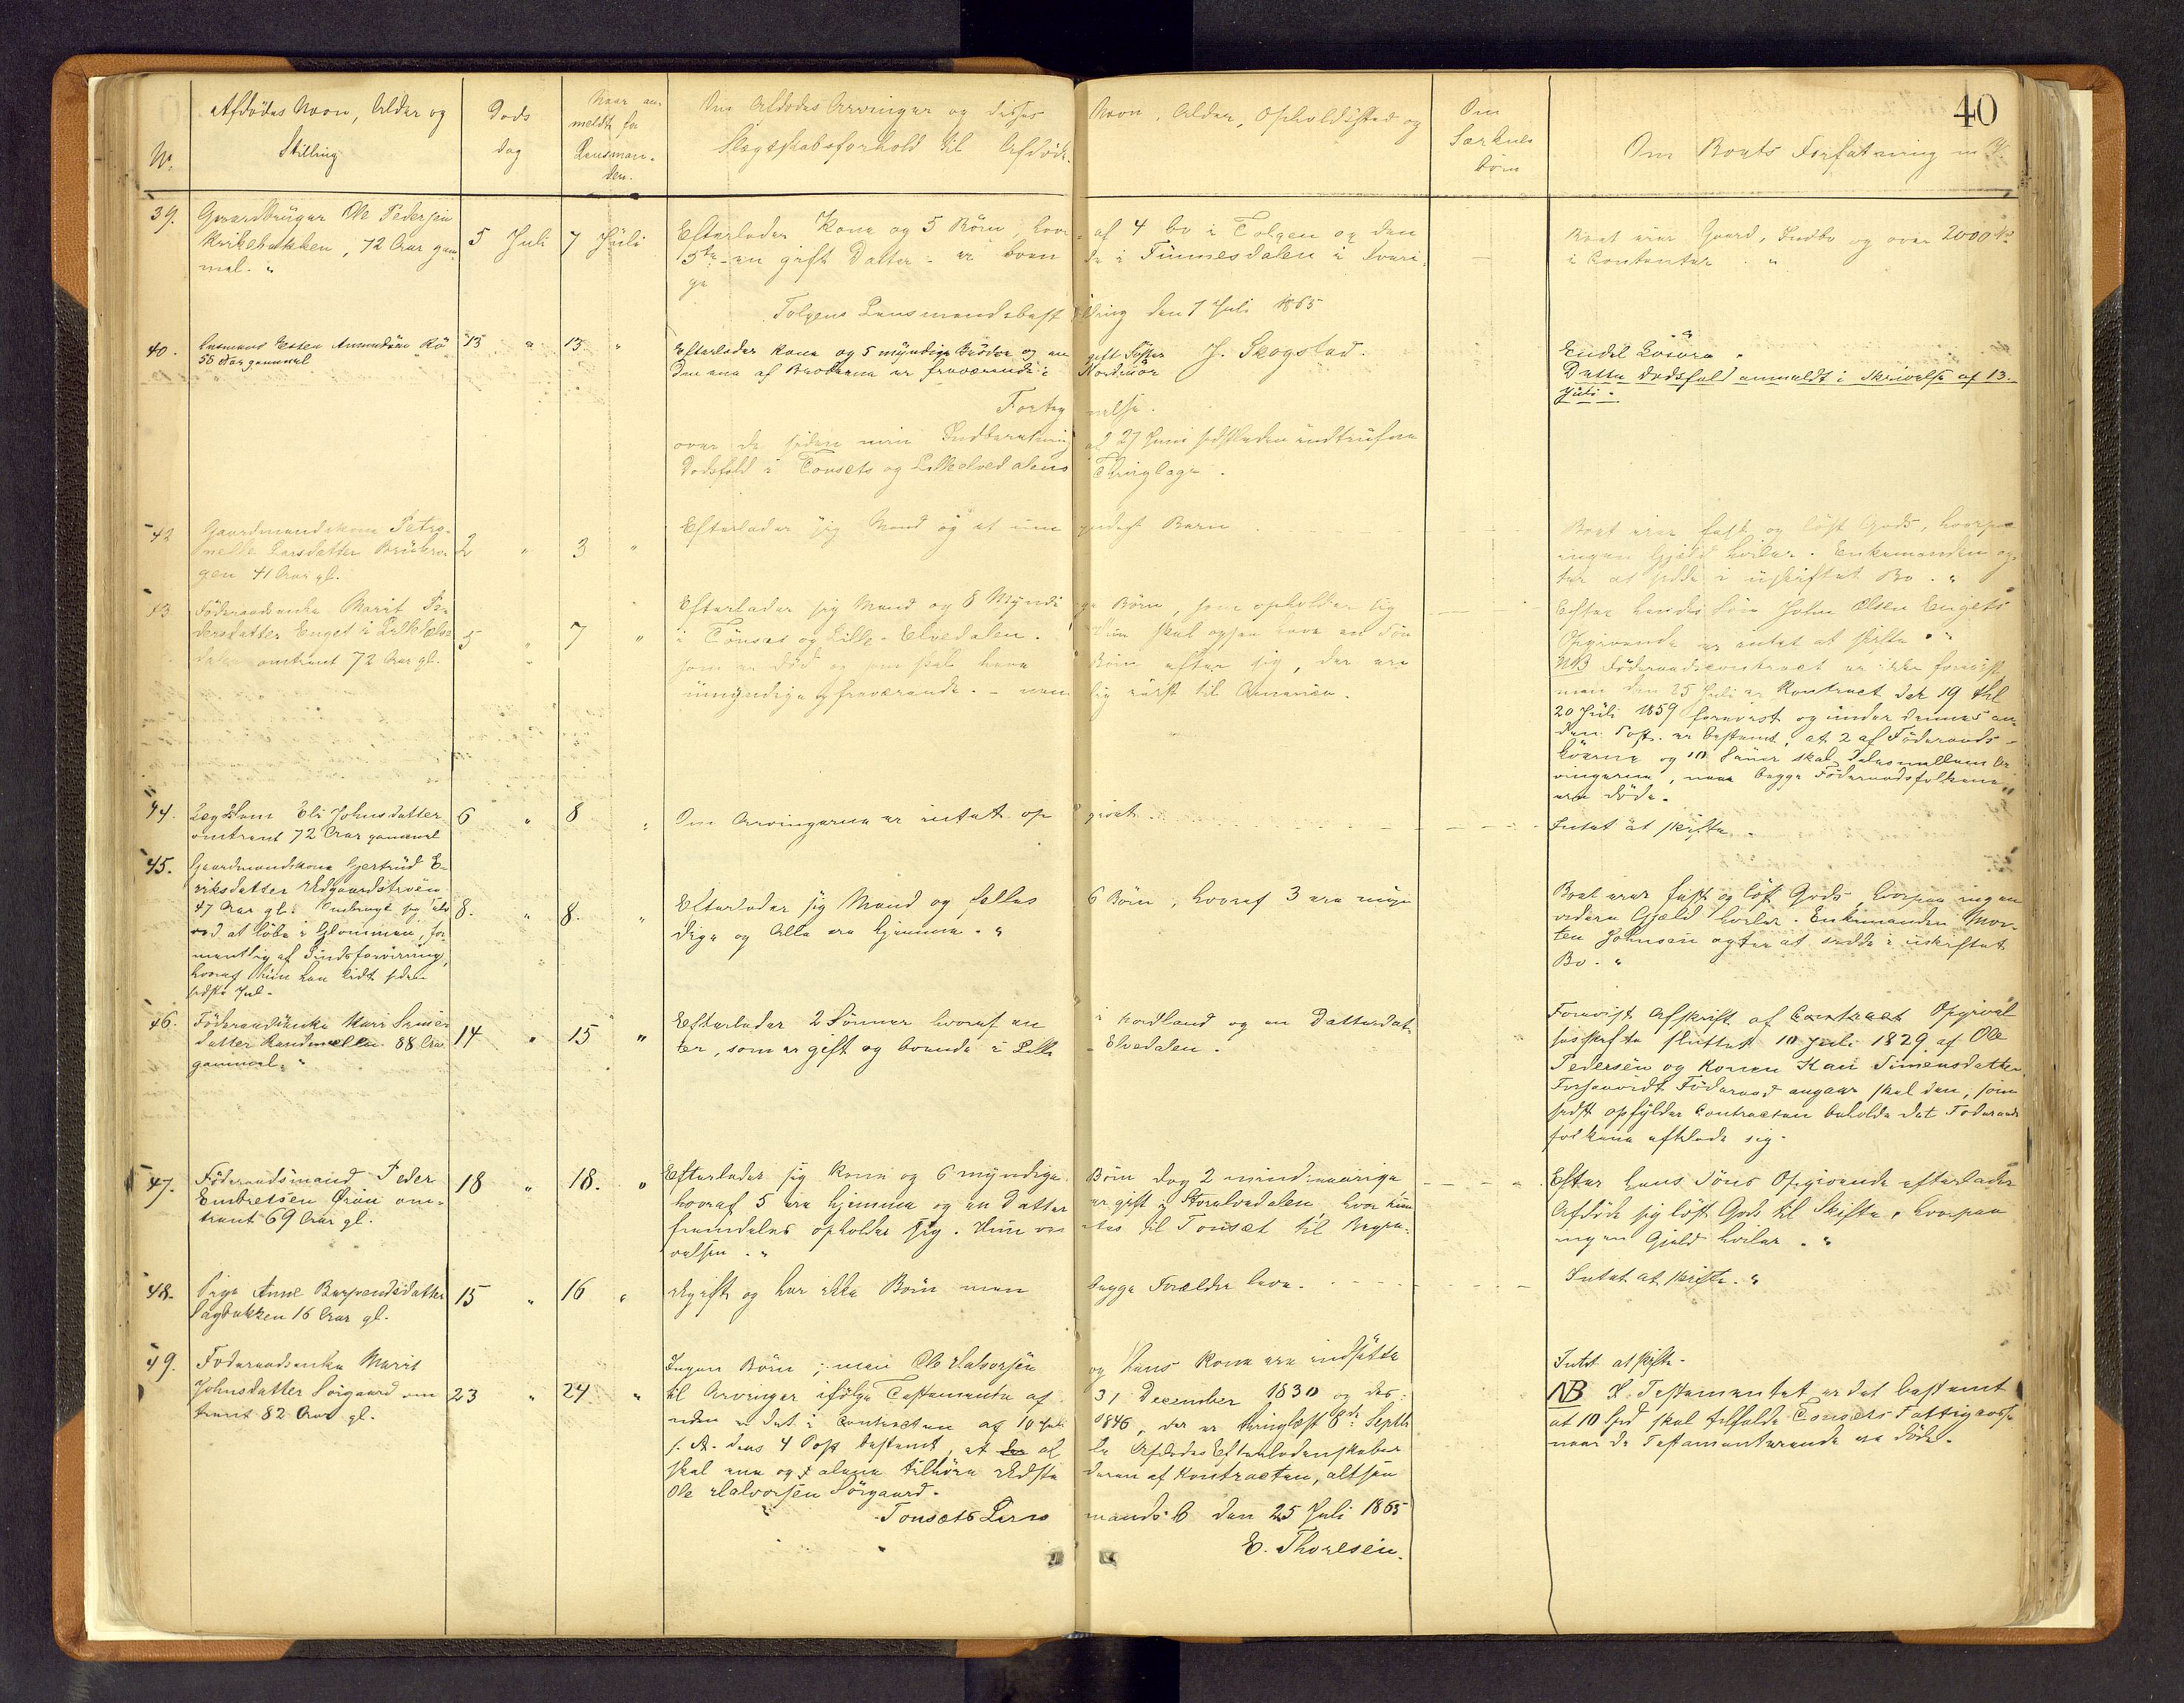 40
No.
Afdödes Navn, Alder og
Stilling
Døds
dag
Naar an-
meldt for
Lensman-
den.
Om Afdødes Arvinger og disses Navn, Alder, Opholdssted og
Slægtskabsforhold til Afdöde.
Om
Særkuls
börn
Om Boets Forfatning m. V.
39. Gaardbruger Ole Pedersen
Kirkebakken, 72 Aar gam
mel. "
5 Juli 7 Juli
Efterlader Kone og 5 Börn, hvor- af 4 bo i Tolgen og den
5te - en gift Datter - er boen de i Funnesdalen i Sveri-
ge
Boet eier Gaard, Indbo og over 2000
i Contanter. "
Tolgens Lensmandsbest illing den 7 Juli 1865
J. Skogstad.
40. Husmand Esten Amundsen
58 Aar gammel
13 " 13 "
Efterlader Kone og 5 myndige Brödre og en gift Söster
Den ene af Brödrene er fraværende i Nordmör
Endel Lösöre.
Dette Dødsfald anmeldt i Skrivelse af 13.
Juli.
Forteg nelse.
over de siden min Indberetning af 27 Juni sidstleden indtrufne
Dødsfald i Tonsets og Lilleelvedalens Thinglage.
42 Gaardmandskone Petro-
nelle Larsdatter
gen 41 Aar gl.
2 " 3 "
Efterlader sig Mand og et umyndigt Barn
Boet eier fast og löst Gods, hvorpaa
ingen Gjeld hviler. Enkemanden ag-
ter at sidde i uskiftet Bo. "
43 Föderaadsenke Marit Pe-
dersdatter Enget i Lilleelve
dalen omtrent 72 Aar gl.
5 " 7 "
Efterlader sig Mand og 8 Myndi ge Börn, som opholder sig
i Tönset og Lille-Elvedalen. Hun skal ogsaa have en Sön
som er död og som skal have Börn efter sig, der ere
umyndige og fraværende. - nem lig reist til Amerika.
Efter hendes Sön John Olsen Engets
Opgivende er intet at skifte. "
NB Föderaadscontract er ikke forevist,
men den 25 Juli er Kontract dat 19 thl
20 Juli 1859 forevist og under dennes an-
den Post er bestemt, at 2 af Föderaads-
köerne og 10 Sauer skal deles mellem Ar
vingerne, naar begge Föderaadsfolkene
ere döde.
44. Lægdslem Eli Johnsdatter
omtrent 72 Aar gammel
6 " 8 "
Om Arvingerne er intet op givet.
Intet at skifte.
45. Gaardmandskone Gjertrud E-
riksdatter Udgaardstrøen
47 Aar gl. Ombragt sig selv
ved at löbe i Glommen, for-
mentlig af Sindsforvirring,
hvoraf hun har lidt siden
sidste Jul.
8. " 8. "
Efterlader sig Mand og fælles 6 Börn, hvoraf 3 ere myn
dige og Alle ere hjemme. "
Boet eier fast og löst Gods, hvorpaa ingen
videre Gjæld hviler. Enkemanden Mor-
ten Johnsen agter at sidde i uskiftet
Bo. "
46. Föderaadsenke Kari Simens
datter Randmellen 88 Aar
gammel. "
14 " 15 "
Efterlader 2 Sönner hvoraf en i Nordland og en Datterdat-
ter, som er gift og boende i Lille Elvedalen.
Forevist Afskrift af Contract Opgivel
sesskifte sluttet 10 Juli 1829 af Ole
Pedersen og Konen Kari Simensdatter.
Forsaavidt Föderaad angaar skal den, som
sidst opfylder Contracten beholde det Föderaads
folkene efterlade sig.
47. Föderaadsmand Peder
Embretsen Øren om-
trent 69 Aar gl.
18 " 18. "
Efterlader sig Kone og 6 myndige Börn dog 2 mindreaarige
hvoraf 5 ere hjemme og en Datter er gift i Storelvedalen, hvor hun
fremdeles opholder sig. Hun ven tes til Tonset til Begra-
velsen. "
Efter hans Söns Opgivende efterlader
Afdöde sig löst Gods til Skifte, hvorpaa
ingen Gjeld hviler. "
48. Pige Anne Berpendsdatter
Sagbakken 16 Aar gl.
15 " 16 "
Ugift og har ikke Börn men begge Forældre leve.
Intet at skifte. "
49. Föderaadsenke Marit
Johnsdatter Sörgaard om
trent 82 Aar gl.
23 " 24 "
Ingen Börn; men Ole Halvorsen og hans Kone ere indsatte
til Arvinger ifölge Testamente af 31 December 1830 og des-
uden er det i Contracten af 10 Juli 1846, der er thinglæst 8de Septbr
s. A. dens 4 Post bestemt, at al de Afdödes Efterladenskaber
skal ene og alene tilhöre Udste deren af Kontracten, altsaa
Ole Halvorsen Sörgaard.
Intet at skifte.
NB I Testamentet er det bestemt
at 10 Spd skal tilfalde Tonsets Fattigkasse
naar de Testamenterende ere döde.
Tonsets Lens mands B den 25 Juli 1865
E. Thoresen.